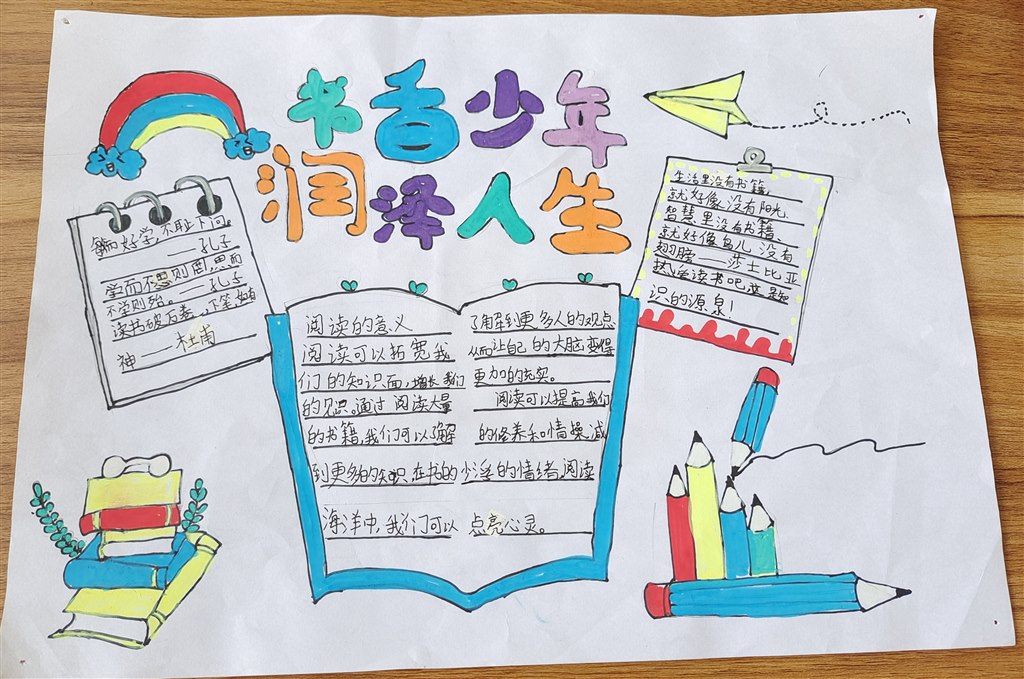 书香少年
润泽人生
敏而好学,不耻下问。
——孔子
学而不思则罔,思而
不学则殆。——孔子
读书破万卷,下笔如有
神——杜甫
阅读的意义
阅读可以拓宽我
们的知识面,增长我们
的见识。通过阅读大量
的书籍,我们可以了解
到更多的知识,在书的
海洋中,我们可以
了解到更多人的观点
从而让自己的大脑变得
更加的充实。
阅读可以提高我们
的修养和情操,减
少淫的情绪,阅读
点亮心灵。
生活里没有书籍,
就好像没有阳光,
智慧里没有书籍,
就好像鸟儿没有
翅膀——莎士比亚
读书吧,
识的源泉!